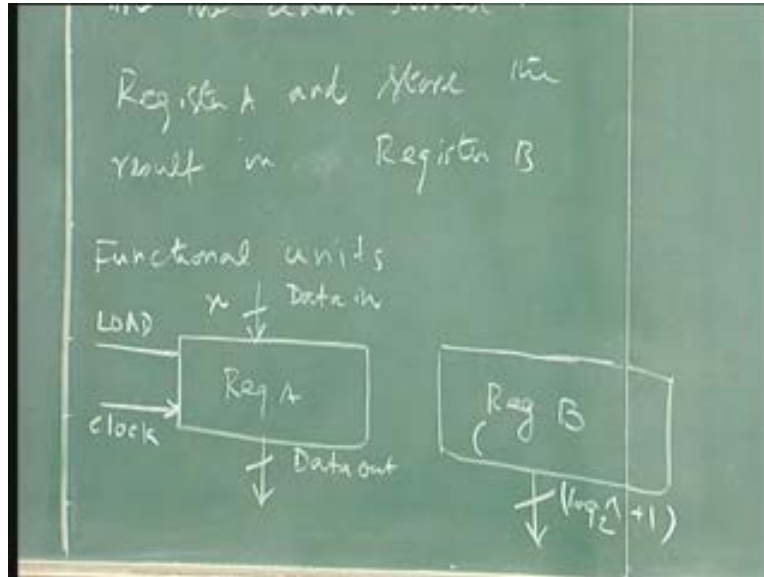 in the
Register A and store the
result in Register B
Functional units
n Data in
LOAD
Reg A
clock
Data out
Reg B
(
(log₂n + 1)